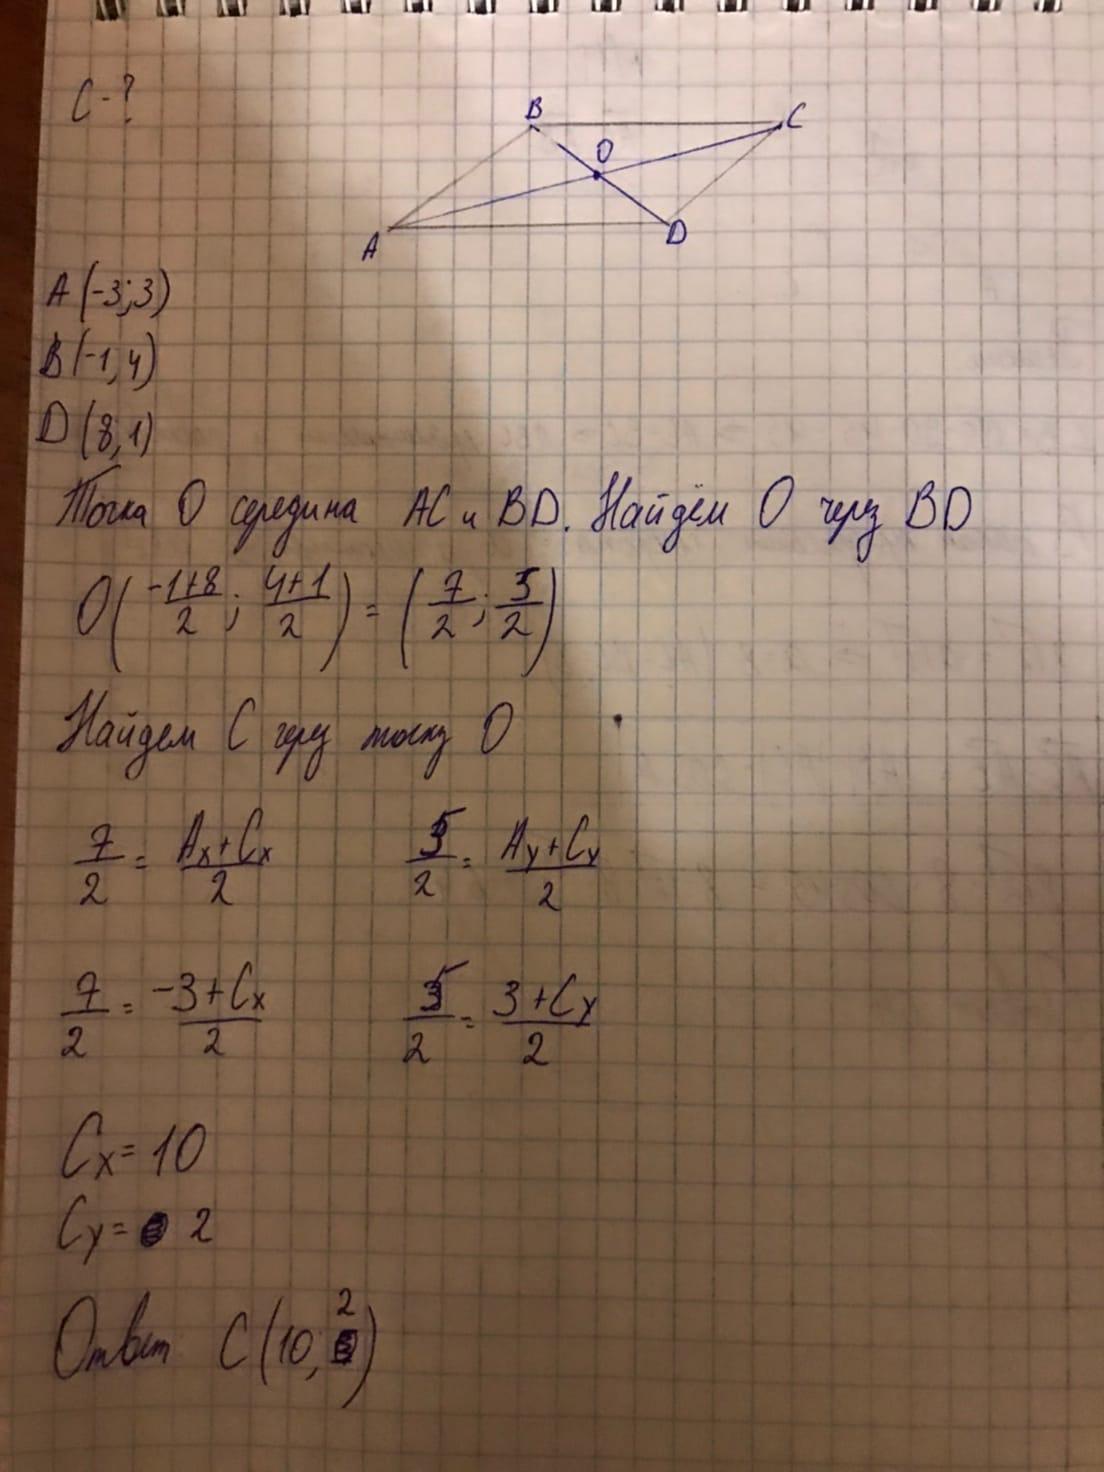 C-?
B
C
O
A
D
A(-3;3)
B(-1,4)
D(8,1)
Точка O середина AC и BD. Найдём O через BD
O((-1+8)/2; (4+1)/2) = (7/2; 5/2)
Найдем C через точку O
7/2 = (Ax+Cx)/2   5/2 = (Ay+Cy)/2
7/2 = (-3+Cx)/2   5/2 = (3+Cy)/2
Cx=10
Cy= 2
Ответ C(10, 2)